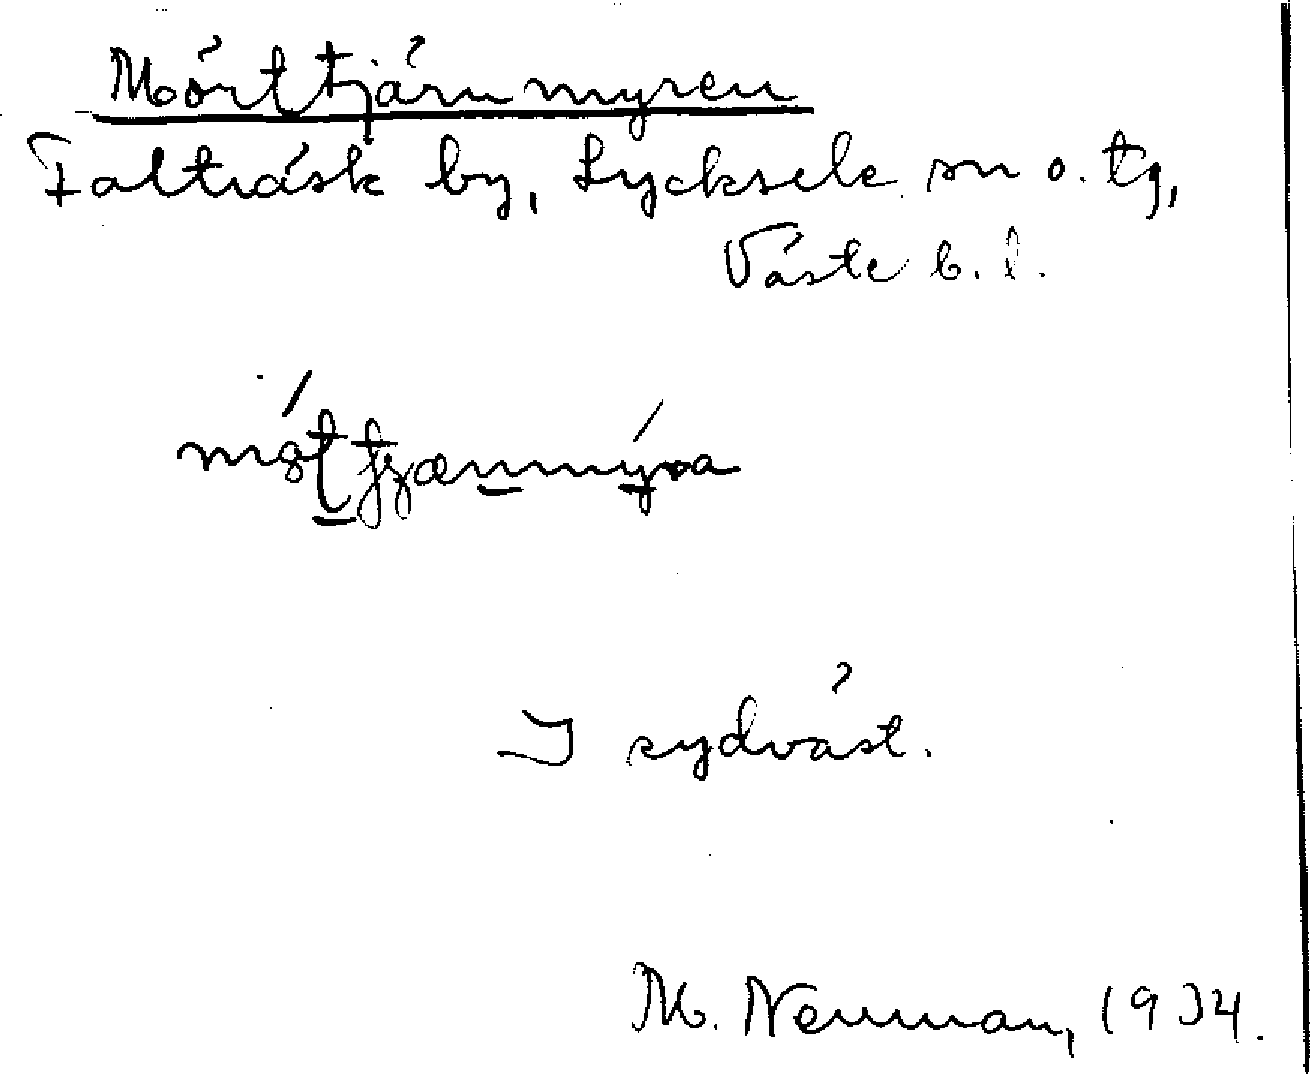 Mörttjärnmyren
Falträsk by, Lycksele sn o. tg,
Väste b. l.
I sydväst.
M. Nenuman, 1934.